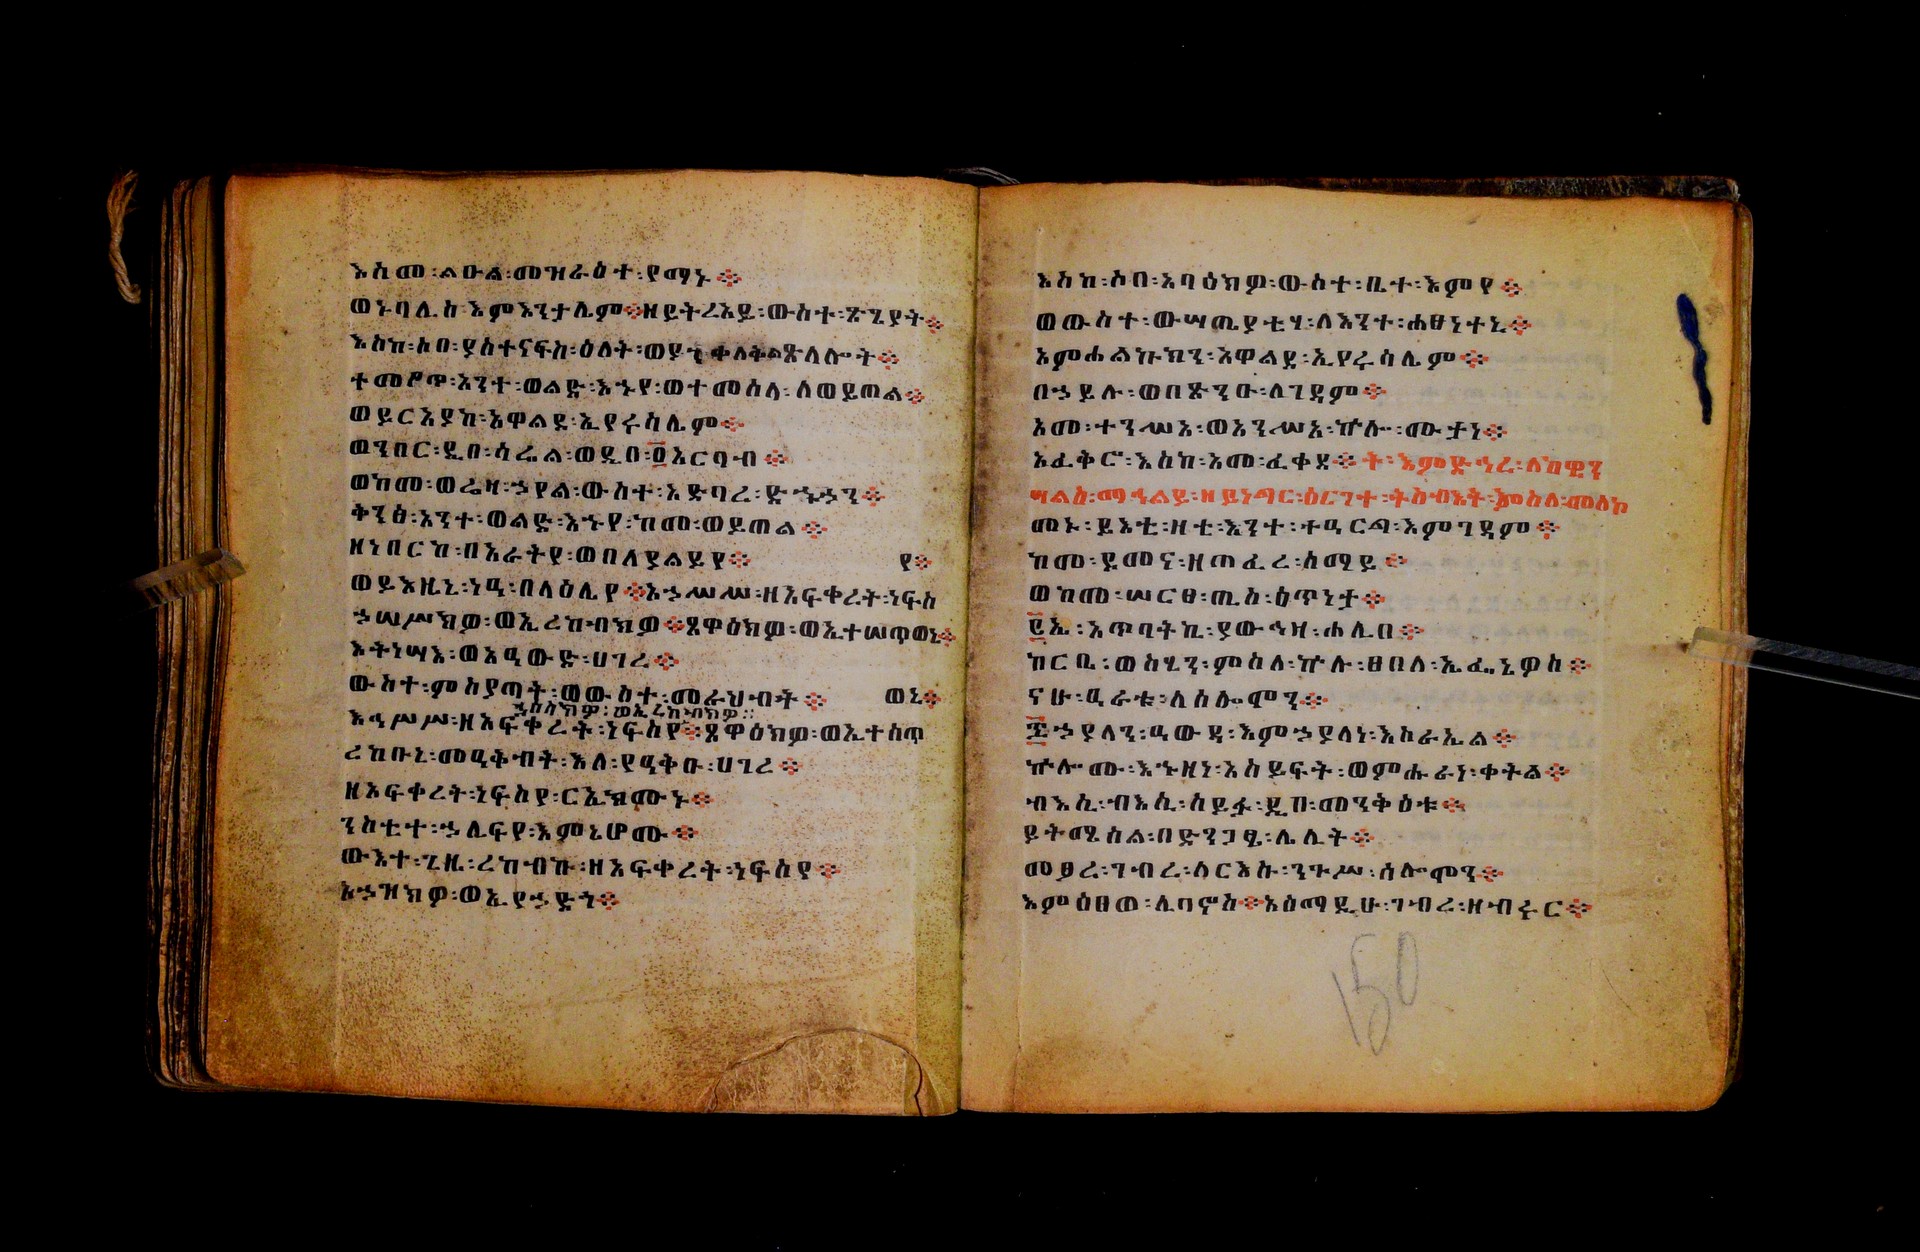 እስመ፡ልዑል፡መዝራዕተ፡የማኑ፨
ወኑባሌከ፡እምእንታሌም፨ዘይትረአይ፡ውስተ፡ጽጌያት፨
እስከ፡ሶበ፡ያስተናፍስ፡ዕለት፡ጽላሎት፨
ተመየጥ፡አንተ፡ወልድ፡እኁየ፡ወተመሰላ፡ለወይጠል
ወይርእያከ፡አዋልደ፡ኢየሩሳሌም፨
ወንበር፡ዲበ፡ሳሬል፡ወዲበ፡፬አርባብ፨
ወከመ፡ወሬዛ፡ኃየል፡ውስተ፡አድባረ፡ድኁኃን፨
ቅንፅ፡አንተ፡ወልድ፡እኁየ፡ከመ፡ወይጠል፨
ዘነበርከ፡በአራትየ፡ወበለያልይየ፨ የ፨
ወይእዜኒ፡ነዒ፡በላዕሌየ፨አኃሥሥ፡ዘአፍቀረት፡ነፍስ
ኃሠሥክዎ፡ወኢረከብክዎ፨ጸዋዕክዎ፡ወኢተሠጥወኒ፨
እትነሣእ፡ወአዒውድ፡ሀገረ፨
ውስተ፡ምስያጣት፡ወውስተ፡መራህብት፨ ወኒ፨
ኃሠሥክዎ፡ወኢረከብክዎ፡፡
አኃሥሥ፡ዘአፍቀረት፡ነፍስየ፨ጸዋዕክዎ፡ወኢተሰጥ
ረከቡኒ፡መዓቅብት፡እለ፡የዓቅቡ፡ሀገረ፨
ዘአፍቀረት፡ነፍስየ፡ርኢክሙኑ፨
ንስቲተ፡ኃሊፍየ፡እምኔሆሙ፨
ውእተ፡ጊዜ፡ረከብኩ፡ዘአፍቀረት፡ነፍስየ፨
አኃዝክዎ፡ወኢያኃድጎ፨
እስከ፡ሶበ፡አባዕክዎ፡ውስተ፡ቤተ፡እምየ፨
ወውስተ፡ውሣጢያቲሃ፡ለእንተ፡ሐፀነተኒ፨
አምሐልኩክን፡አዋልደ፡ኢየሩሳሌም፨
በኃይሉ፡ወበጽንዑ፡ለገዳም፨
እመ፡ተንሥአ፡ወአንሥአ፡ኵሎ፡ሙታነ፨
አፈቅሮ፡እስከ፡አመ፡ፈቀደ፨ት፡እምድኅረ፡ለበዊን
ሣልስ፡ማኅልይ፡ዘይነጻር፡ዕርገተ፡ትስብእት፡ምስለ፡መለኮ
መኑ፡ይእቲ፡ዛቲ፡እንተ፡ተዓርጋ፡እምገዳም፨
ከመ፡ደመና፡ዘጠፈረ፡ሰማይ፨
ወከመ፡ሠርፀ፡ጢስ፡ዕጥነታ፨
ሮኢ፡አጥባትኪ፡ያውኅዛ፡ሐሊበ፨
ከርቤ፡ወስሂን፡ምስለ፡ኵሉ፡ፀበለ፡ኤፌኔዎስ፨
ናሁ፡ዓራቱ፡ለሰሎሞን፨
፷ኃያላን፡ዓውዳ፡እምኃያላነ፡እስራኤል፨
ኵሎሙ፡እኁዛነ፡አስይፍት፡ወምሁራነ፡ቀትል፨
ብእሲ፡ብእሲ፡ሰይፉ፡ዲበ፡መንቅዕቱ፨
ይትሜሰል፡በድንጋፄ፡ሌሊት፨
መፆረ፡ገብረ፡ለርእሱ፡ንጉሥ፡ሰሎሞን፨
እምዕፀወ፡ሊባኖስ፨አዕማዲሁ፡ገብረ፡ዘብሩር፨
150